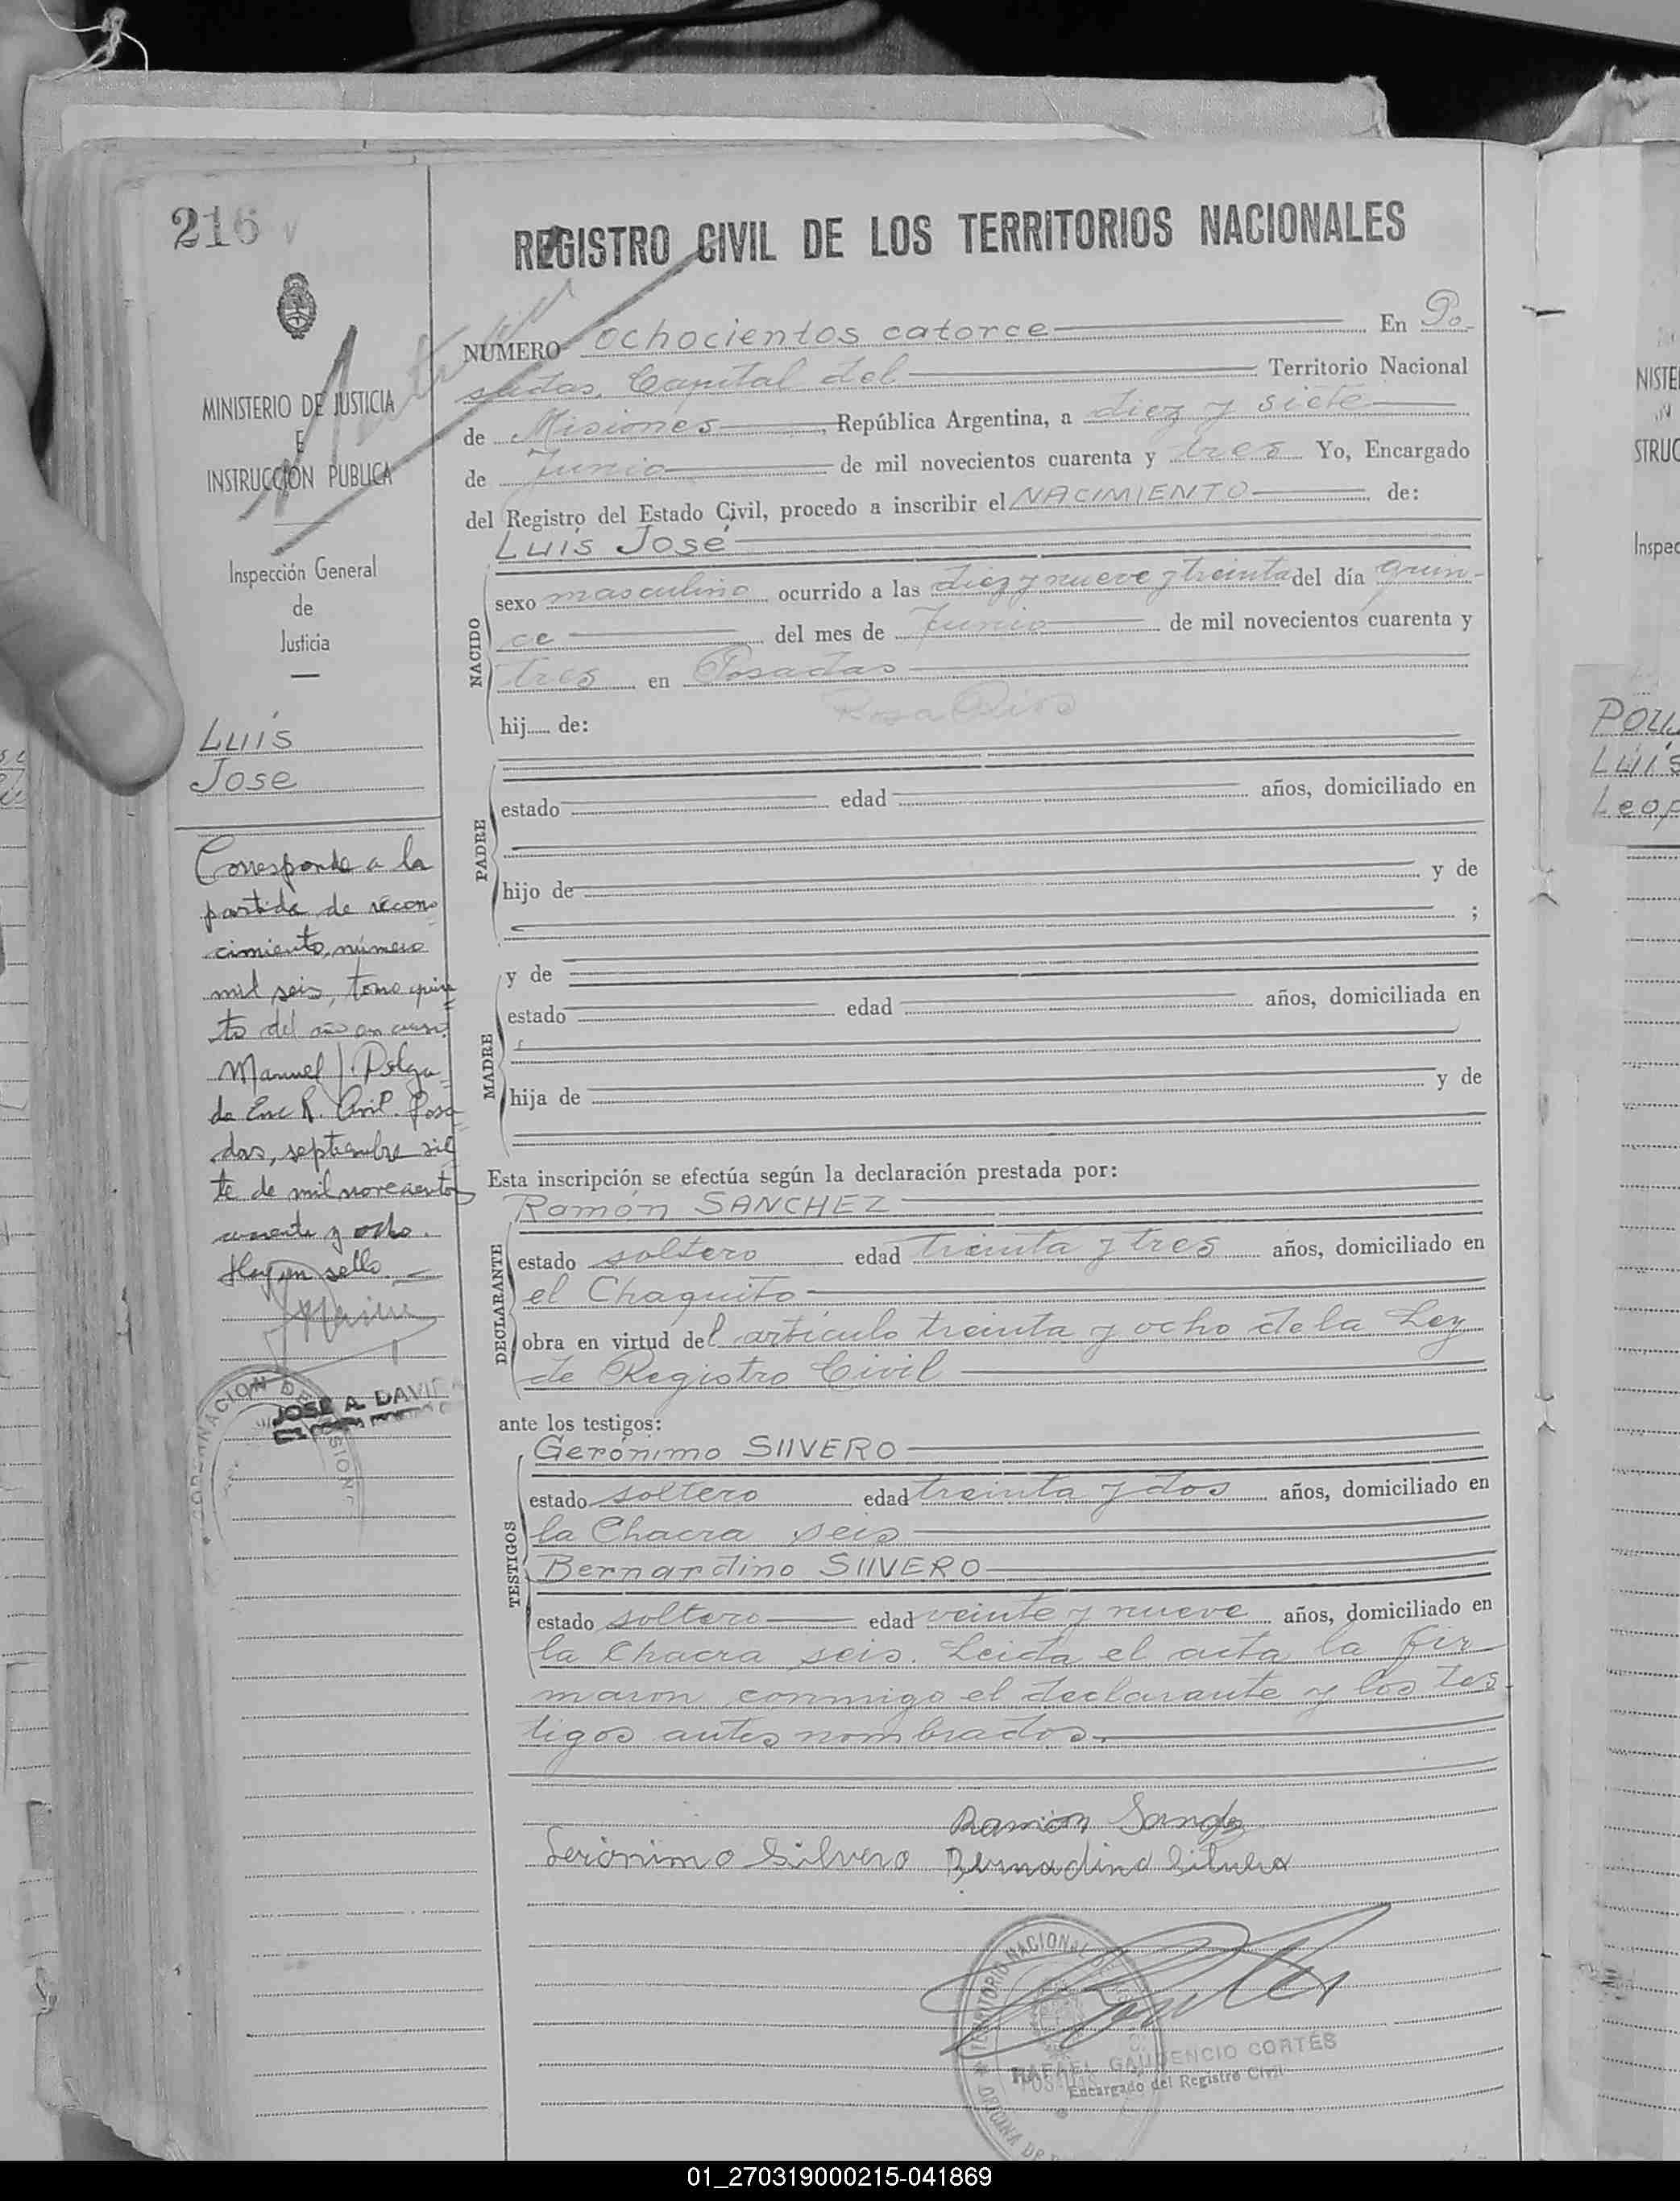 216
REGISTRO CIVIL DE LOS TERRITORIOS NACIONALES
MINISTERIO DE JUSTICIA
E
INSTRUCCIÓN PUBLICA
Inspección General
de
Justicia
Luis
Jose
Corresponde a la
partida de recono
cimiento, número
mil seis, tomo quin
to del año en curso
Manuel J. Delga
do Enc R. Civil. Posa
das, septiembre sie
te de mil novecientos
cuarenta y ocho.
Hay un sello.
JOSE A. DAVI
NUMERO ochocientos catorce En Po-
sadas, Capital del Territorio Nacional
de Misiones, República Argentina, a diez y siete
de Junio de mil novecientos cuarenta y tres Yo, Encargado
del Registro del Estado Civil, procedo a inscribir el NACIMIENTO de:
Luis José
NACIDO
sexo masculino ocurrido a las diez y nueve y treinta del día quin-
ce del mes de Junio de mil novecientos cuarenta y
tres en Posadas
Rosa Rios
hij..... de:
PADRE
estado edad años, domiciliado en
hijo de y de
;
MADRE
y de
estado edad años, domiciliada en
hija de y de
Esta inscripción se efectúa según la declaración prestada por:
DECLARANTE
Ramón SANCHEZ
estado soltero edad treinta y tres años, domiciliado en
el Chaquito
obra en virtud del artículo treinta y ocho de la Ley
de Registro Civil
ante los testigos:
TESTIGOS
Gerónimo SIlVERO
estado soltero edad treinta y dos años, domiciliado en
la Chacra seis
Bernardino SIlVERO
estado soltero edad veinte y nueve años, domiciliado en
la Chacra seis. Leida el acta la fir
maron conmigo el declarante y los tes
tigos antes nombrados.
Ramón
Gerónimo Silvero Bernadino
RAFAEL GAUDENCIO CORTÉS
Encargado del Registro Civil
NISTE
STRUC
Inspec
Luis
Leop
01_270319000215-041869